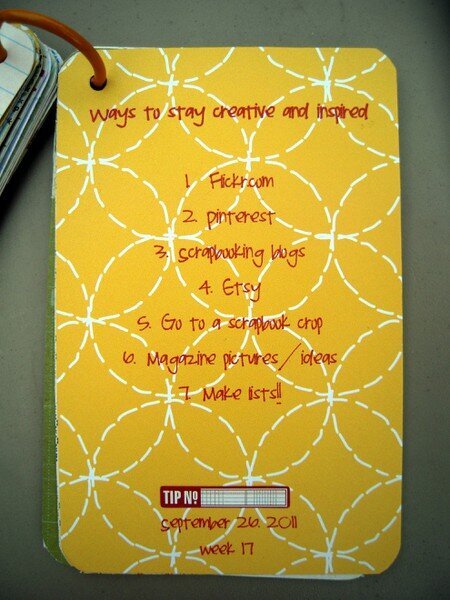 Ways to stay creative and inspired
1. Flickr.com
2. pinterest
3. scrapbooking blogs
4. Etsy
5. Go to a scrapbook crop
6. Magazine pictures/ideas
7. Make lists!!
TIP Nº
september 26. 2011
week 17